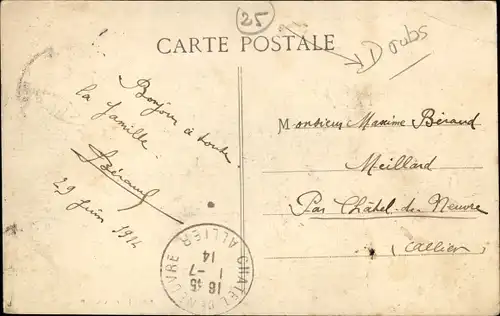 25
CARTE POSTALE
Doubs
Bonjour à toute
la famille
Béraud
29 Juin 1914
Monsieur Maxime Béraud
Meillard
Par Châtel-de-Neuvre
(Allier)
CHATEL DE NEUVRE
16 45
1 -7
14
ALLIER